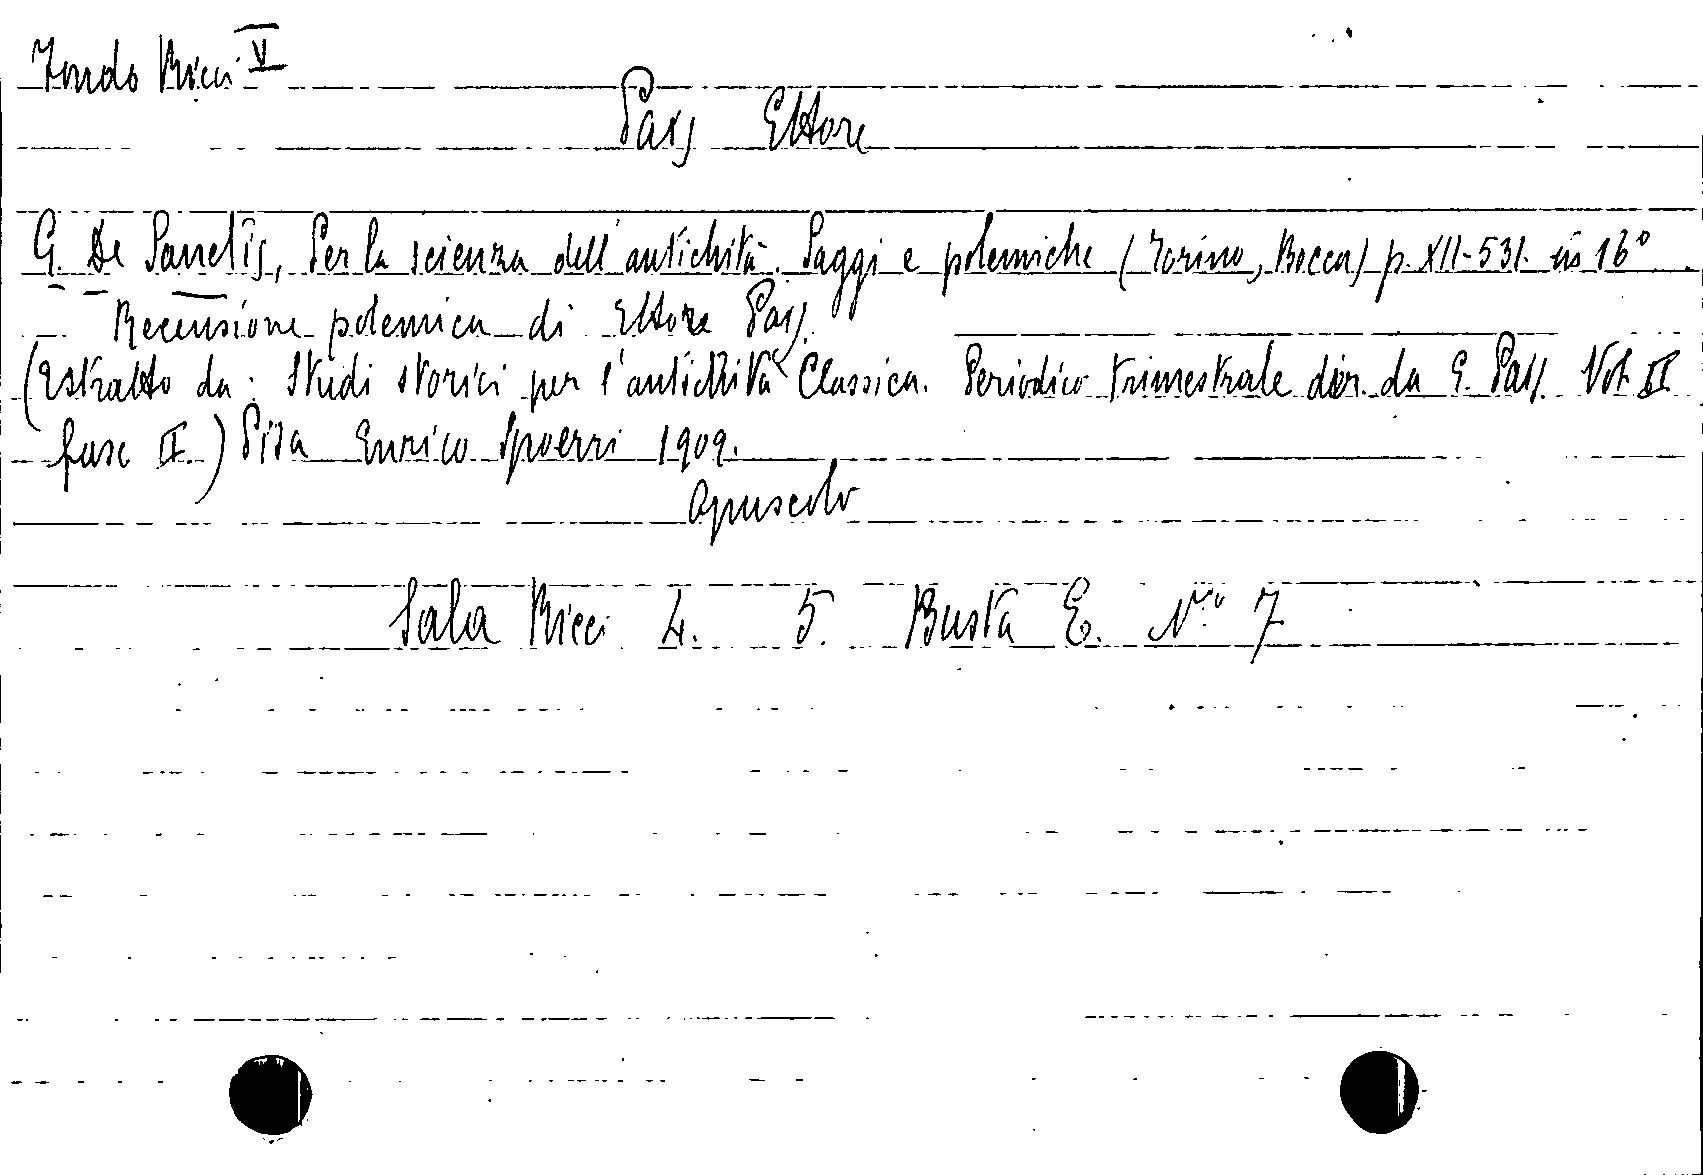 Fondo Ricci V
Pais Ettore
G. De Sanctis, Per la scienza dell'antichità. Saggi e polemiche (Torino, Bocca) p. XII-531. in 16°
Recensione polemica di Ettore Pais.
(Estratto da: Studi storici per l'antichità Classica. Periodico trimestrale dir. da E. Pais. Vol. II
fasc II.) Pisa Enrico Spoerri 1909.
opuscolo
Sala Ricci 4. 5. Busta E. N.o 7